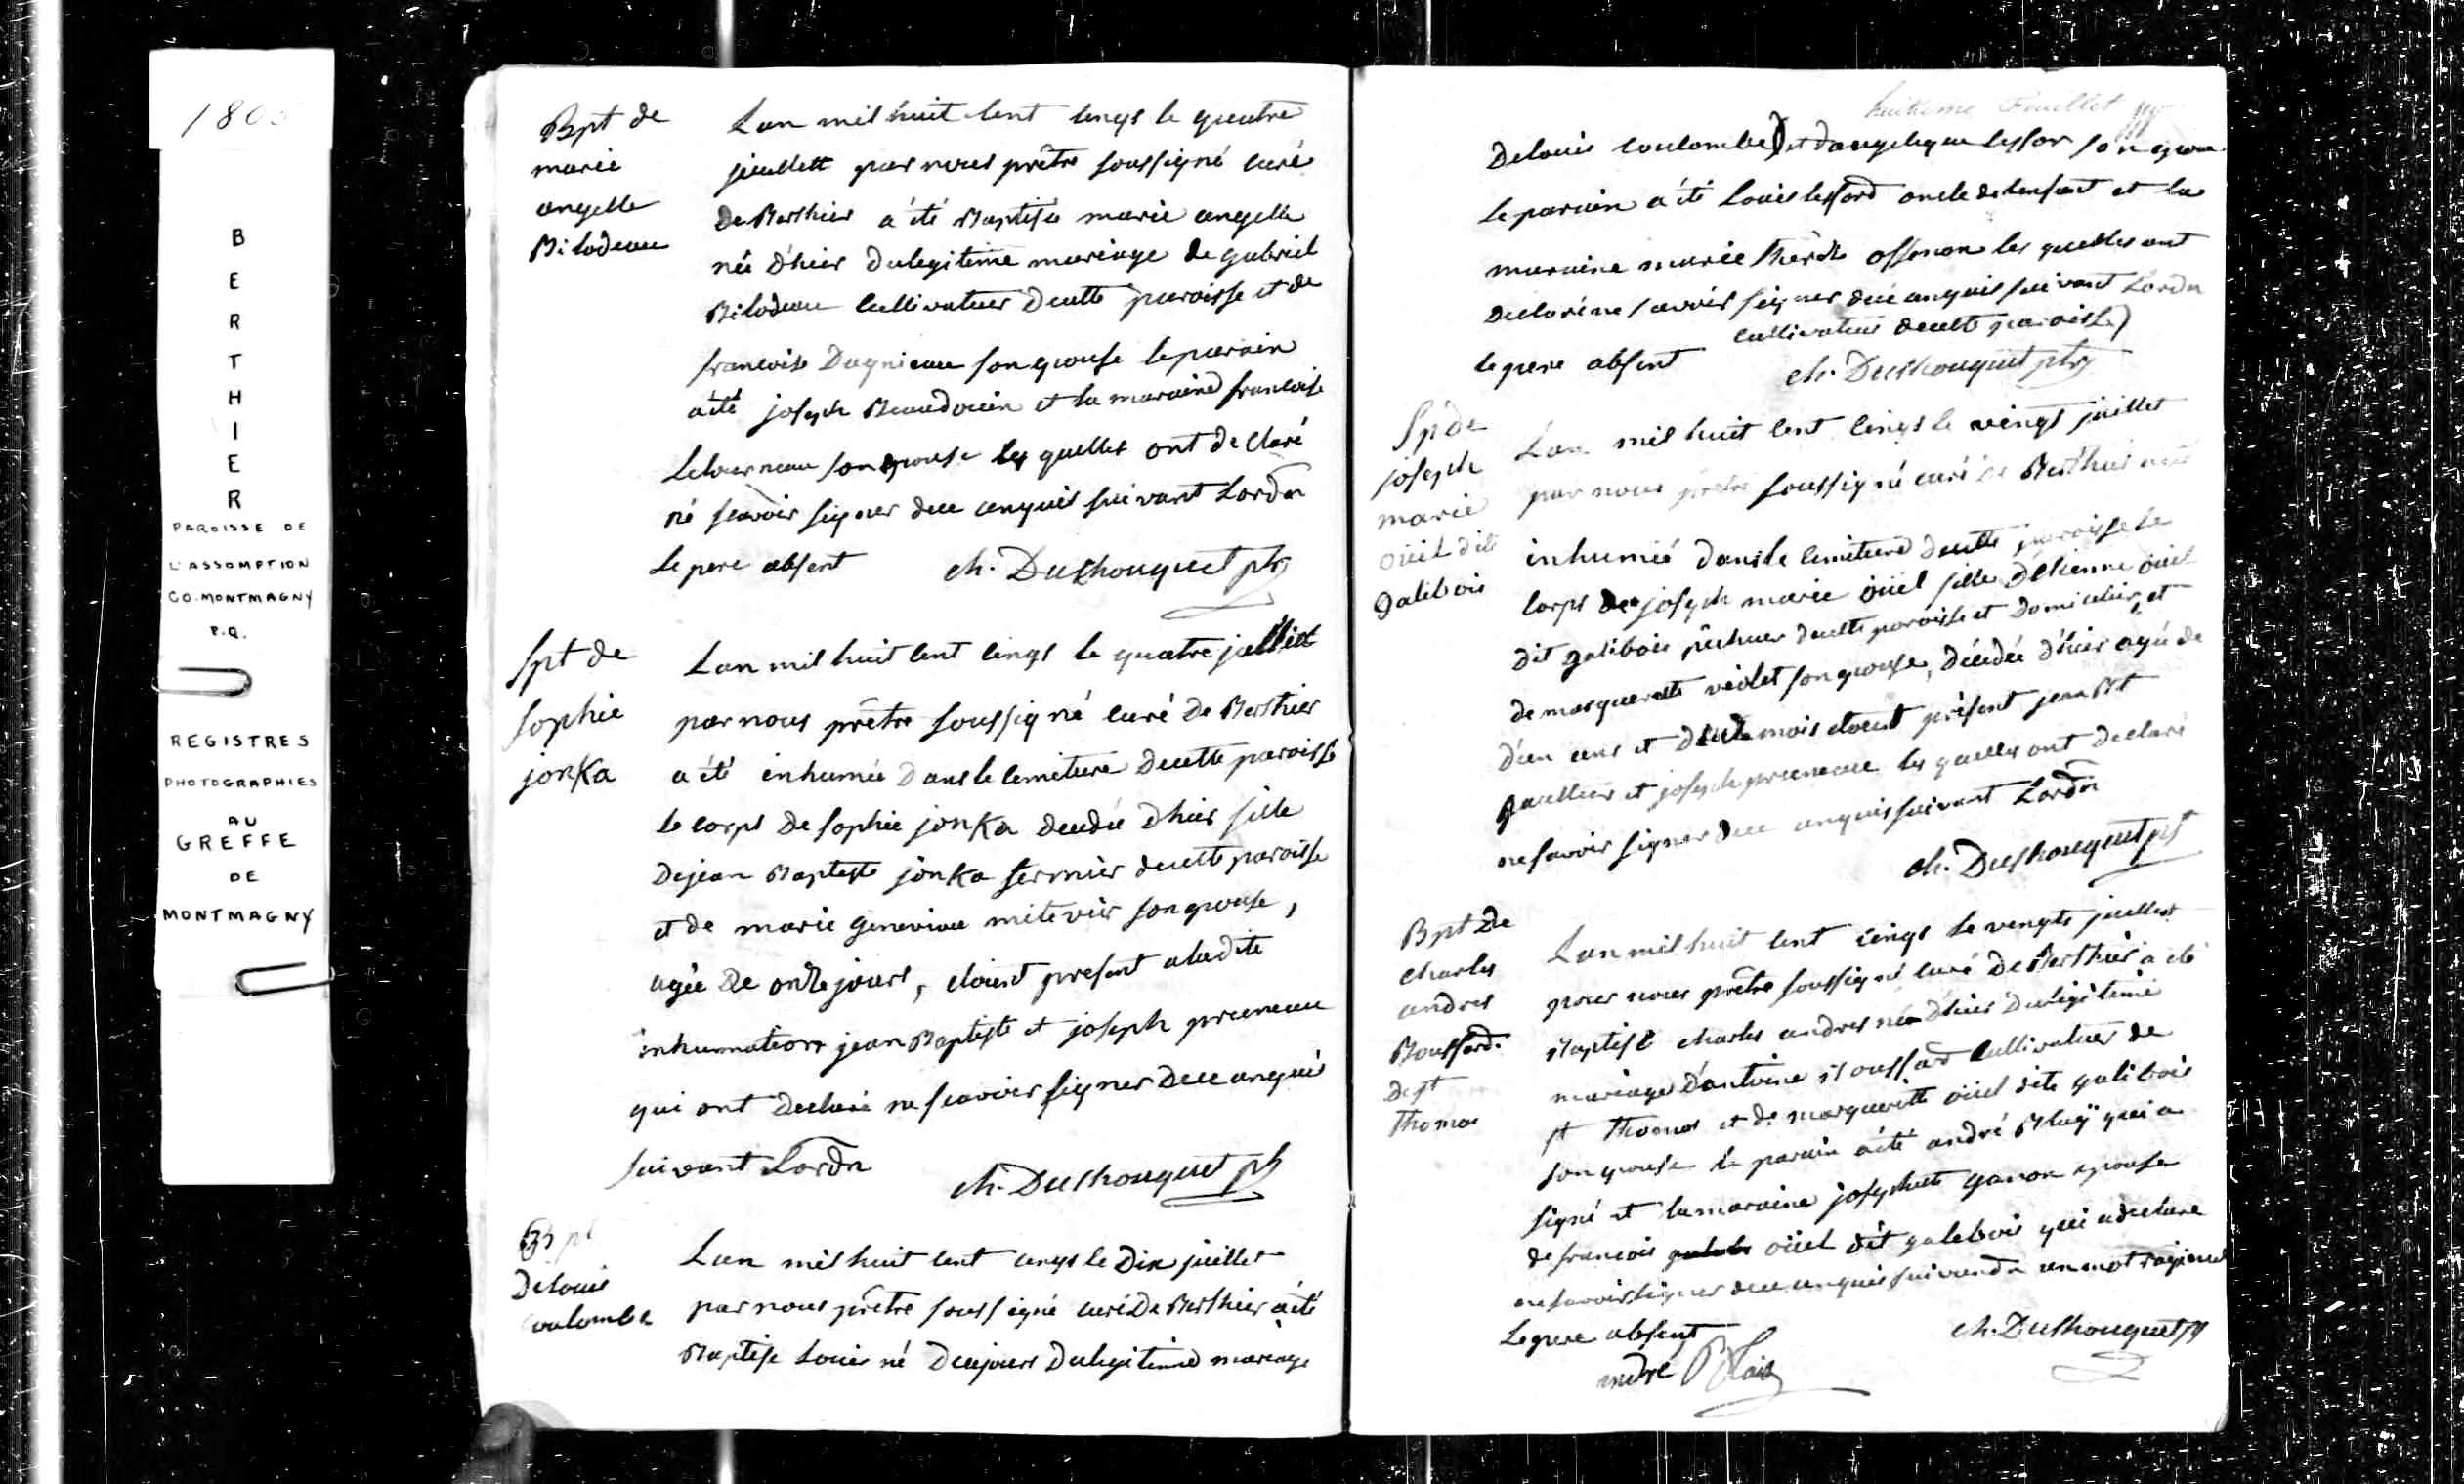 1805
B
E
R
T
H
I
E
R
PAROISSE DE
L'ASSOMPTION
CO. MONTMAGNY
P.Q.
REGISTRES
PHOTOGRAPHIES
AU
GREFFE
DE
MONTMAGNY
Bpt de
marie
angelle
Bilodeau
Lan mil huit cent cinqs le quatre
juillett par nous prêtre soussigné curé
de Berthier a été Baptisée marie angelle
née d'hier dulegitime mariage de gabriel
Bilodeau Cultivateur decette paroisse et de
francoise Dagnieau son epouse le parain
a été joseph Beaudouin et la maraine francoise
Letourneau son epouse les quelles ont declaré
né scavoir signer dece enquis suivant Lordn
le pere absent ch. Duchouquet ptr
Spt de
Sophie
jonKa
Lan mil huit cent cinqs le quatre juilliet
par nous prêtre soussigné curé de Berthier
a été inhumée dans le cemitiere decette paroisse
le corps de sophie jonKa decedée d'hier fille
dejean Baptiste jonKa fermier decette paroisse
et de marie genevieve son epouse,
agée de onze jours, etoient present aladite
inhumation jean Baptiste et joseph pruneau
qui ont declaré ne scavoir signer dece enquis
suivant Lordn ch. Duchouquet ptr
Bpt
De louis
Coulombe
Lan mil huit cent cinqs le Dix juillet
par nous prêtre soussigné curé De Berthier a été
Baptise Louis né Decejours Dulegitime mariage
huitieme Feuillet
Delouis coulombe) et dangelique lessor son epouse
le parain a été Louis lessord oncle delenfant et la
maraine marie les quelles ont
declaré ne savoir signer dece enquis suivant Lordn
cultivateur decette paroisse)
le pere absent ch. Duchouquet ptr
Sp de
joseph
marie
oüel dit
galibois
Lan mil huit cent cinqs le vingt juillet
par nous prêtre soussigné curé de Berthier
inhumé dans le cemitiere decette paroisse le
corps de joseph marie oüel fille détienne oüel
dit galibois pêcheur decette paroisse et domicilier, et
de marguerette violet son epouse, décédée d'hier agée de
d'un ans et mois etoient present jean Bt
et joseph pruneau les quelles ont declaré
ne savoir signer dece enquis suivant Lordn
ch. Duchouquet ptr
Bpt De
charles
andres
Boussard
de st
Thomas
Lan mil huit cent cinqs le vengts juillet
par nous prêtre soussigné curé de Berthier a été
Baptisé charles andres né d'hier Dulegitime
mariage d'antoine Boussard Cultivateur de
st Thomas et de margueritte oüel dite galibois
son epouse le parain a été andré Blay qui a
signé et la maraine josephete ganon epouse
de francois oüel dit galebois qui adeclare
ne savoir signer dece enquis suivordn un mot rayé nul
Le pere absent ch. Duchouquet ptr
andre Blais